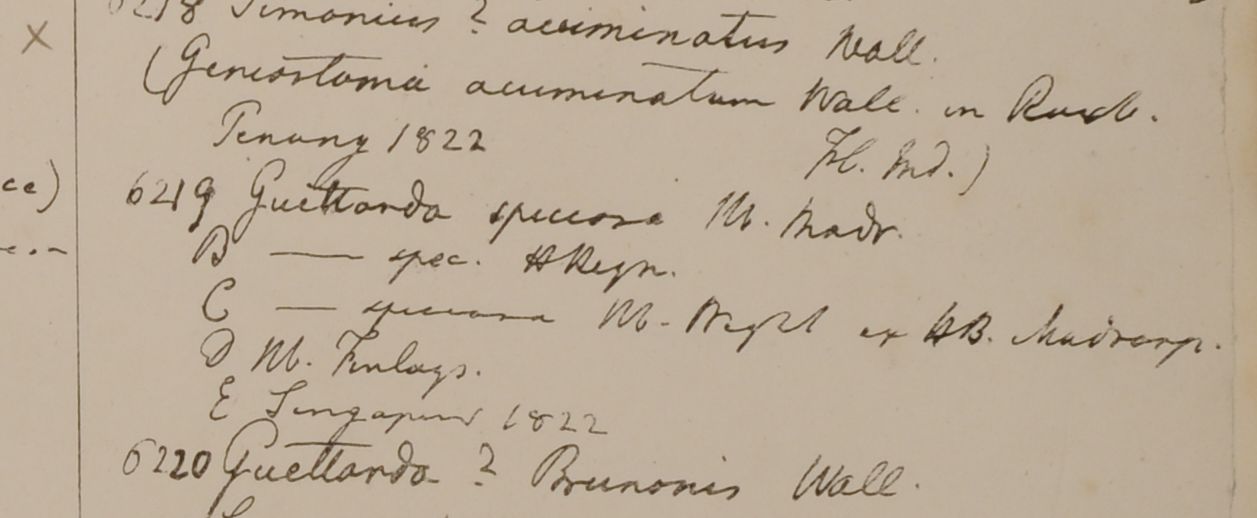 6218 Timonius ? acuminatus Wall.
(Geniostoma acuminatum Wall. in Roxb.
Penang 1822 Fl. Ind.)
ce)
6219 Guettarda speciosa Hb. Madr.
B — spec. HBRegn.
C — speciosa Hb. Wight ex HB. Madrasp.
D Hb. Finlays.
E Singapur 1822
6220 Guettarda ? Brunonis Wall.